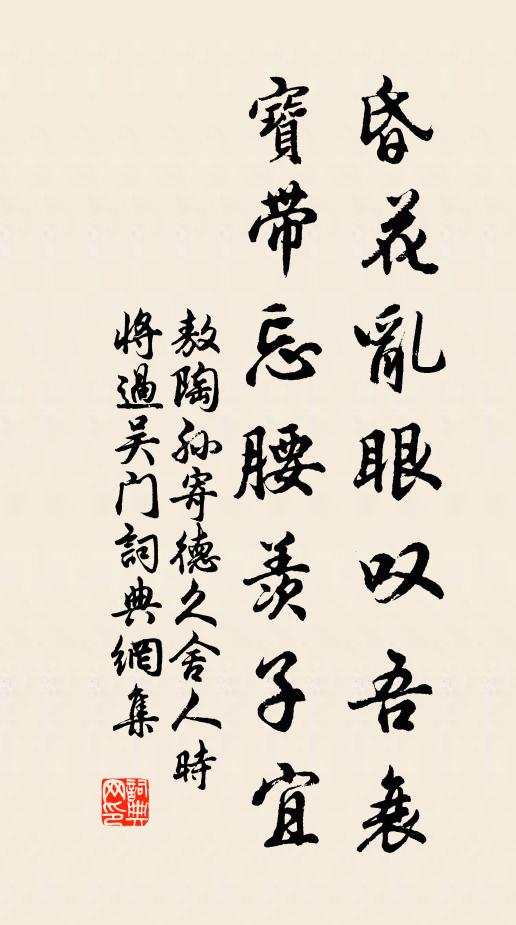 昏花亂眼叹吾衰
寶带忘腰羨子宜
敖陶孙寄德久舍人時
將過吴门詞典網集
詞典网印